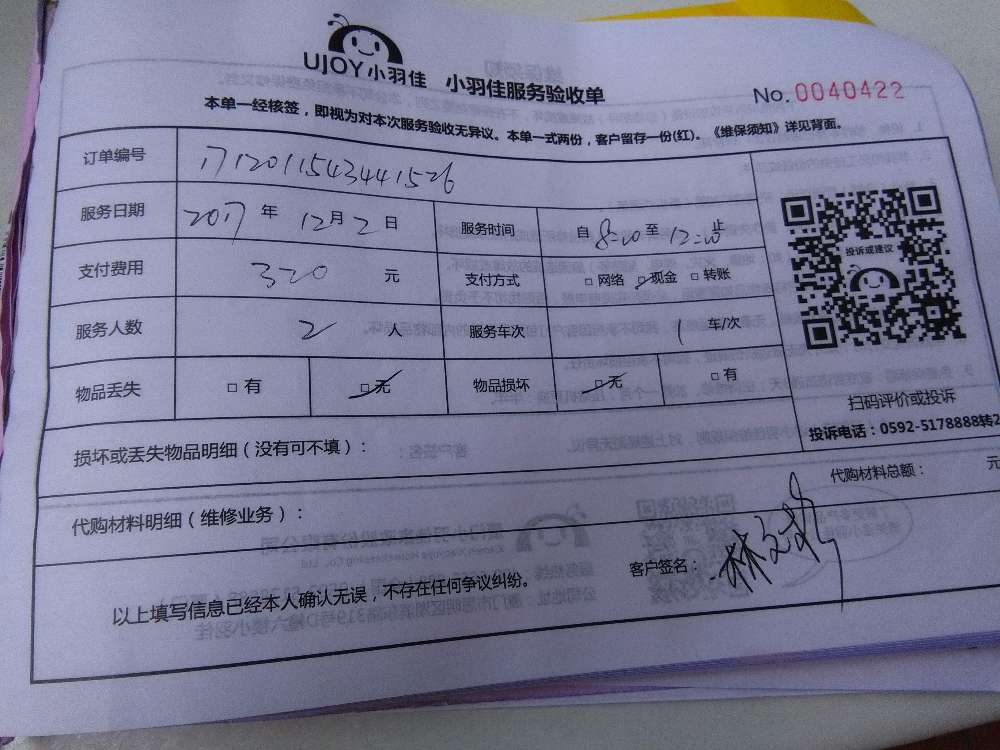 UJOY小羽佳 小羽佳服务验收单
No. 0040422
本单一经核签，即视为对本次服务验收无异议。本单一式两份，客户留存一份(红)。《维保须知》详见背面。
订单编号 1712011543441526
服务日期 2017年12月2日 服务时间 自8:00至12:00止
支付费用 320元 支付方式 □网络 ☑现金 □转账
服务人数 2人 服务车次 1车/次
物品丢失 □有 ☑无 物品损坏 ☑无 □有
投诉或建议
扫码评价或投诉
投诉电话：0592-5178888转2
损坏或丢失物品明细（没有可不填）：
代购材料总额： 元
代购材料明细（维修业务）：
客户签名：林
以上填写信息已经本人确认无误，不存在任何争议纠纷。